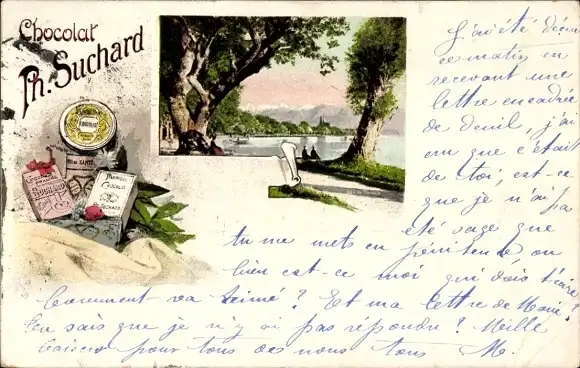 Chocolat
Ph. Suchard
J'ai été déçue
ce matin en
recevant une
lettre encadrée
de deuil, j'ai
cru que c'était
de toi, est-ce
que je n'ai pas
été sage que
tu me mets en pénitence ou
bien est-ce moi qui dois t'écrire?
Comment va Aimé? Et ma lettre de Marie?
Tu sais que je n'y ai pas répondu? Mille
baisers pour tous de nous tous M.